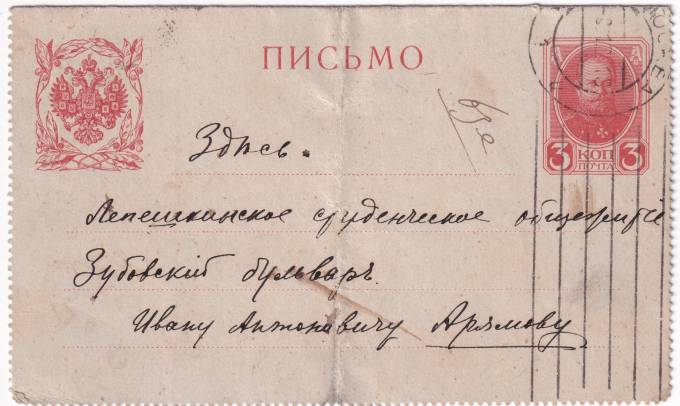 ПИСЬМО
МОСКВА
3 КОП 3
ПОЧТА
Здѣсь.
Лепешкинское студенческое общежитіе
Зубовскій бульваръ.
Ивану Антоновичу Арямову